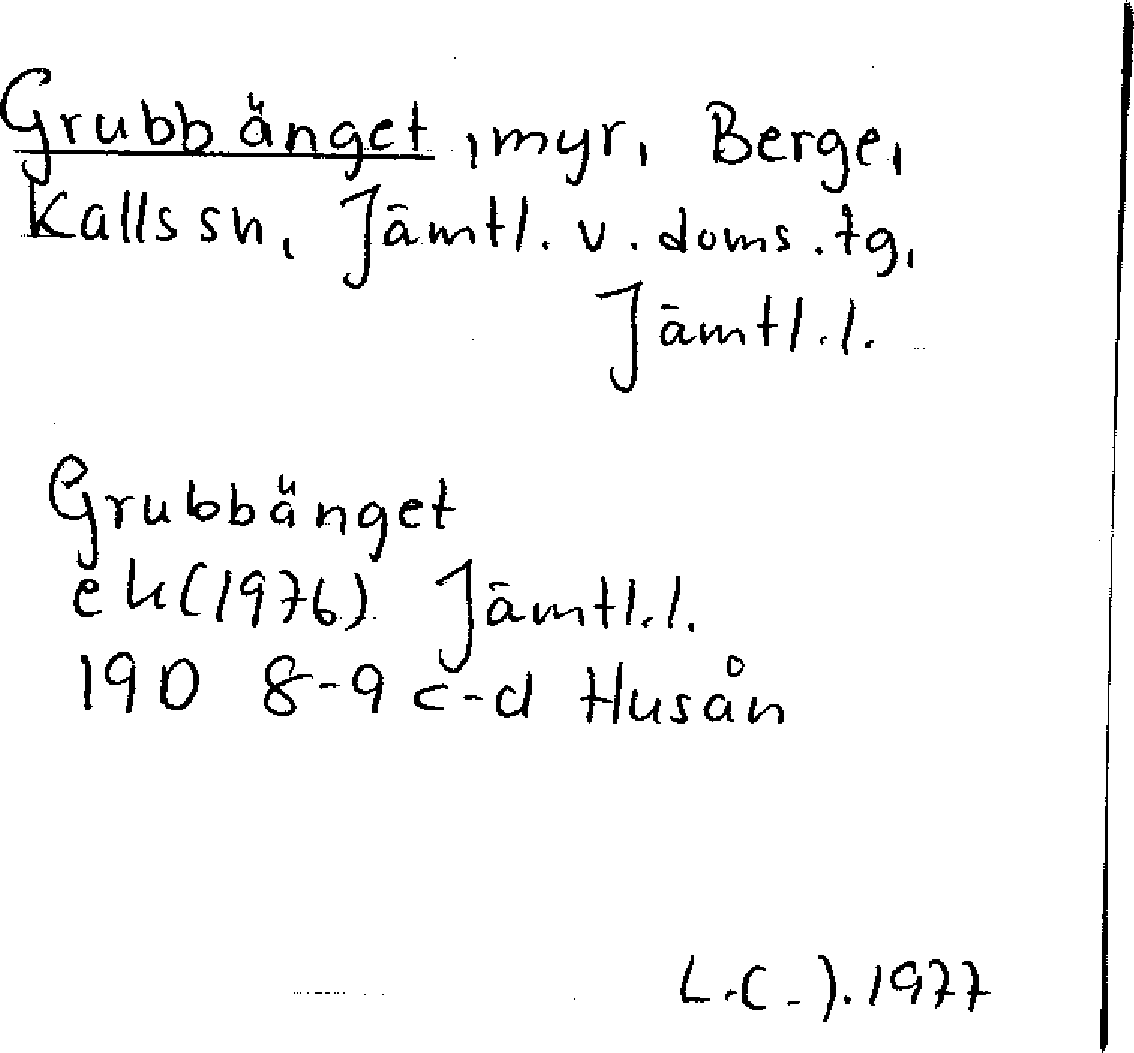 Grubbänget, myr, Berge,
Kalls sn, Jämtl. v. doms. tg,
Jämtl. l.
Grubbänget
ek (1976) Jämtl. l.
19D 8-9 c-d Husån
L.C-J. 1977